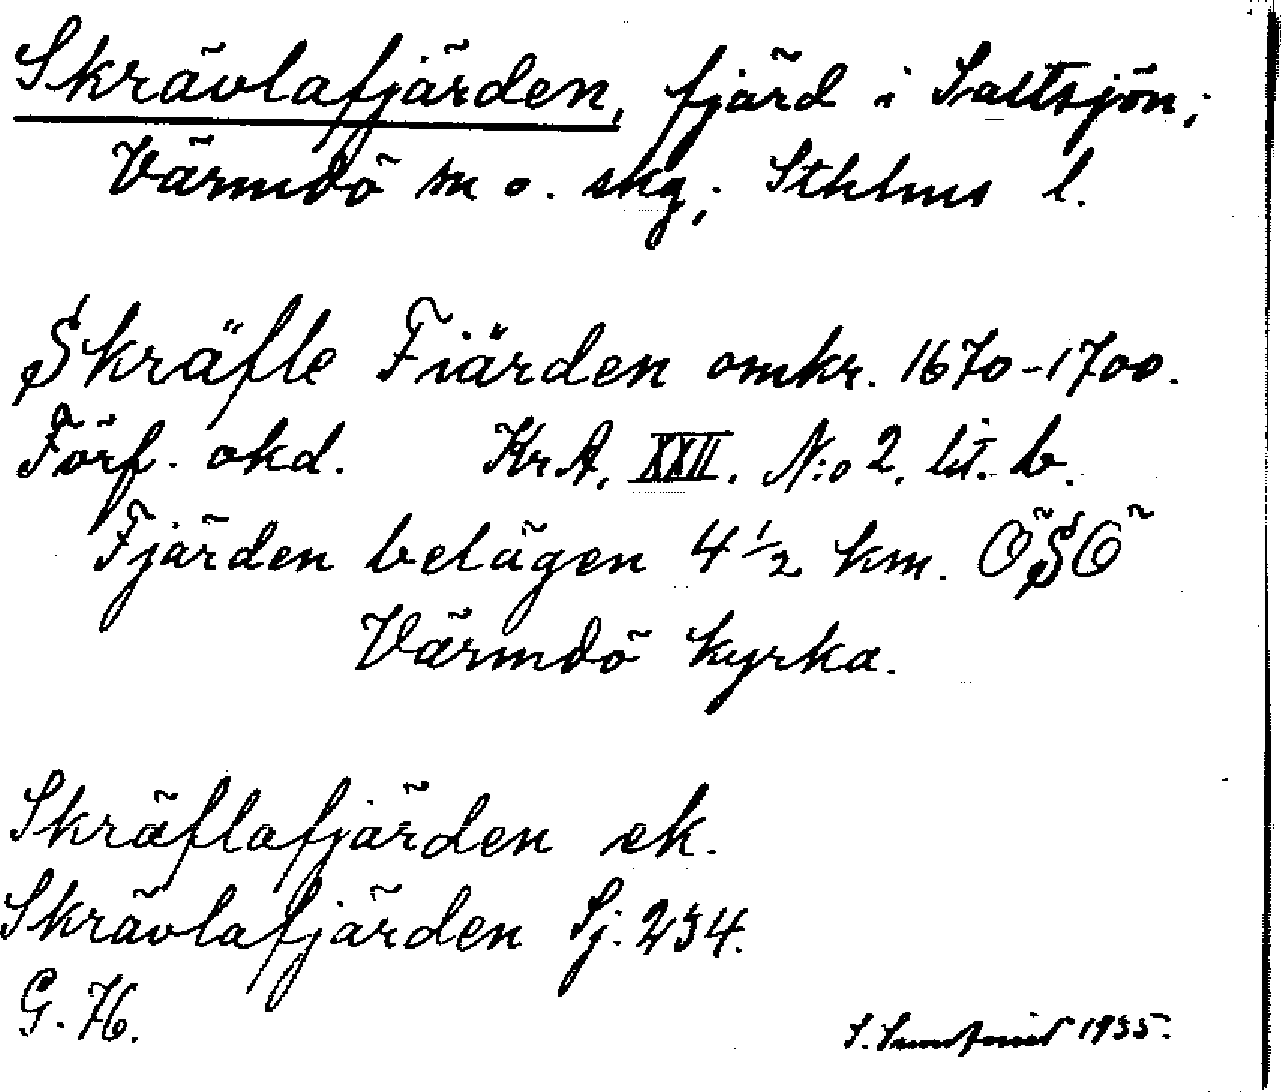 Skrävlafjärden, fjärd i Saltsjön;
Värmdö m o. skg; Sthlms l.
Skräfle Fiärden omkr. 1670-1700.
Förf. okd. KrA. XXII. N:o 2. lit. b.
Fjärden belägen 4 1/2 km. ÖSÖ
Värmdö kyrka.
Skräflafjärden ek.
Skrävlafjärden Sj. 234.
G. 76.
S. 1935.